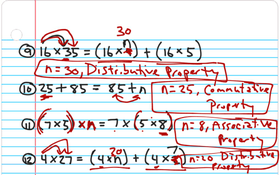 30
⑨ 16 × 35 = (16 × n) + (16 × 5)
n = 30, Distributive Property
⑩ 25 + 85 = 85 + n
n = 25, Commutative Property
⑪ (7 × 5) × n = 7 × (5 × 8)
n = 8, Associative Property
20
⑫ 4 × 27 = (4 × n) + (4 × 7)
n = 20 Distributive Property